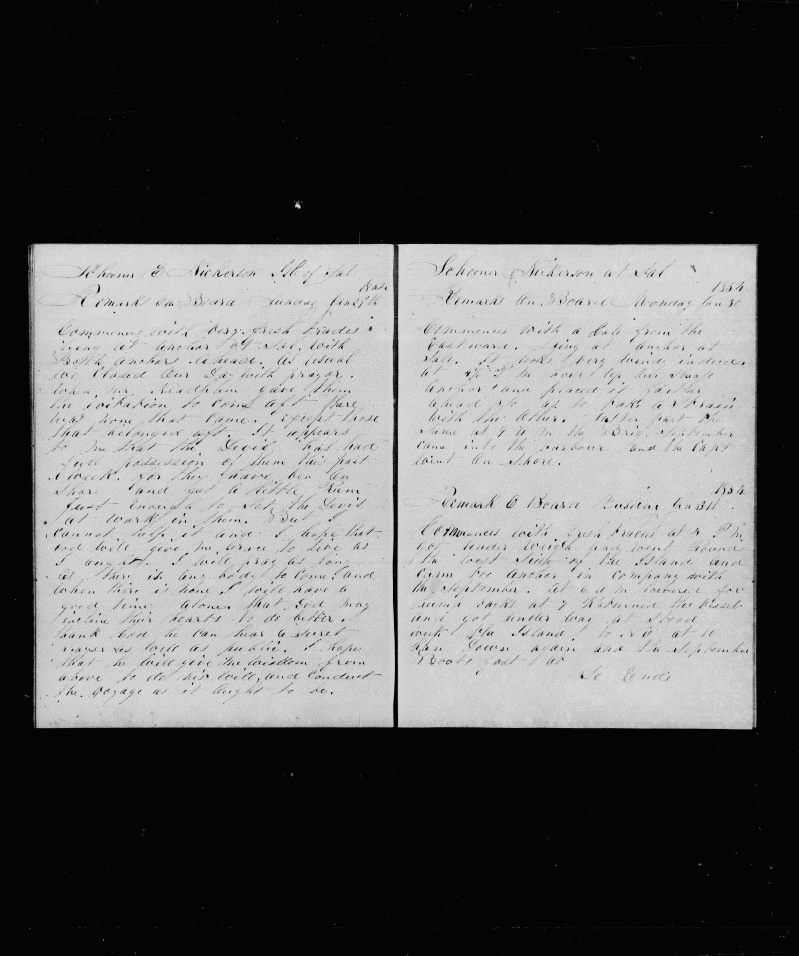 Schooner E Nickerson Isle of Sal
Remarks On Board Sunday Jan 29th
Commences with very fresh trades
at anchor at Sal. with
Both anchors ahead. As usual
we Closed Our Day with prayer.
When Mr. Needham gave them
the invitation to come aft there
was none that Came. Except those
that belonged aft. It appears
to me that the Devil has had
full possession of them this past
week. For they have ben on
Shore and got a little Rum
Just enough to set the Devil
at work in them. But I
Cannot help it and I hope that
God will give me Grace to Live as
I ought. I will pray as long
As there is any body to Come and
when there is none I will have a
good time alone that God may
incline their hearts to do better. I
thank God he can hear a secret
prayer as well as public. I hope
that he will give me wisdom from
above to do his will, and Conduct
the voyage as it ought to be.
Schooner E Nickerson at Sal
1854
Remarks On Board Monday Jan 30
Commences with a Gale from the
Eastward. Lying at anchor at
Sall. It looks very windy indeed.
at P M hove up Our Small
Anchor and placed it farther
ahead so as to take a Strain
with the Other. Latter part the
Same at 9 A M the Brig September
came into the harbour and the Capt
went On Shore.
1854
Remark O Board Tuesday Jan 31
Commences with fresh trades at 4 P M
got under weigh and went Round
the west Side of the Island and
Came too Anchor in Company with
the September. At 6 A M lowered for
hump backs at 7 Returned the vessel
and got under way at Stood
with the Island to N W at 10
Ran Down again and the September
Boats fast at
So Ends